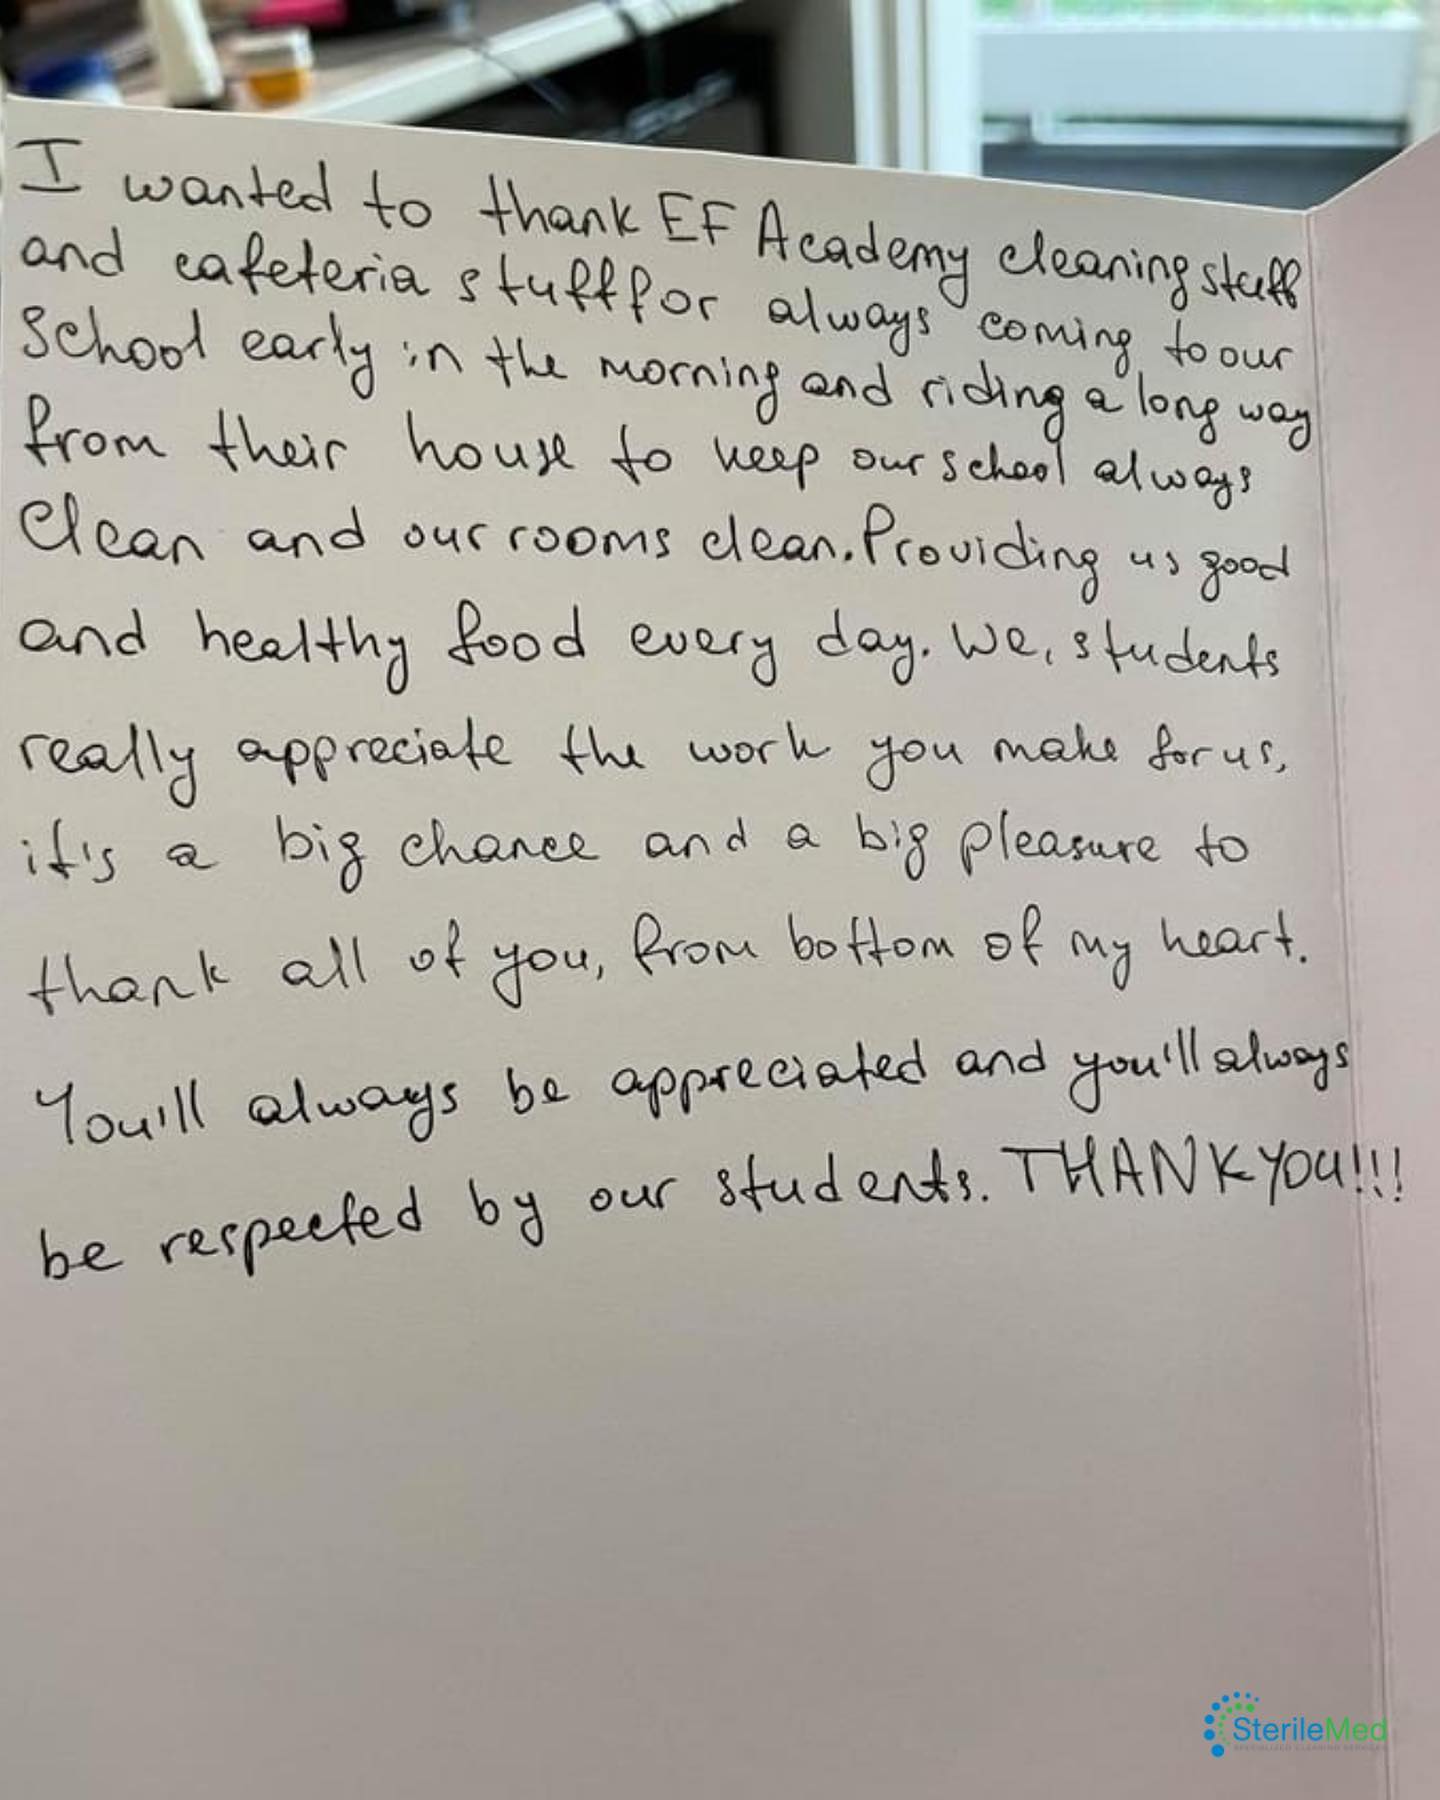 I wanted to thank EF Academy cleaning stuff
and cafeteria stuff for always coming to our
school early in the morning and riding a long way
from their house to keep our school always
clean and our rooms clean. Providing us good
and healthy food every day. We, students
really appreciate the work you make for us,
it's a big chance and a big pleasure to
thank all of you, from bottom of my heart.
You'll always be appreciated and you'll always
be respected by our students. THANK YOU!!!
SterileMed
SPECIALIZED CLEANING SERVICES